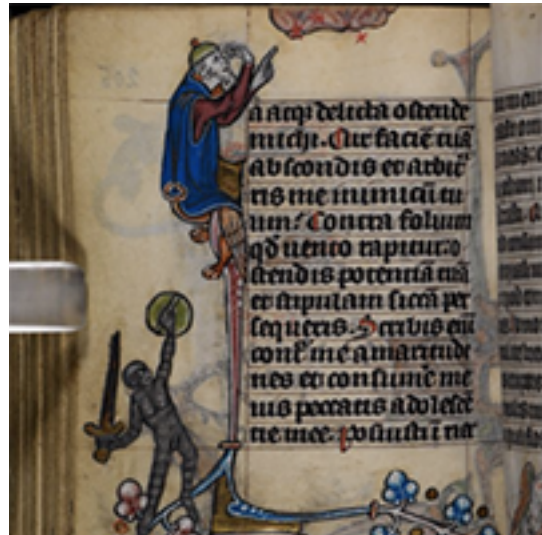 a atqꝫ delicta ostende
michi. Cur faciē tuā
abscondis et arbit̄
ris me inimicū tu
um? Contra folium
qd̄ uento rapitur o
stendis potenciā tuā
et stipulam siccā per
sequeris. Scribis eī
cont̄ me amaritudi
nes et consumē me
uis peccatis adolescē
tie mee. Posuisti ī ner